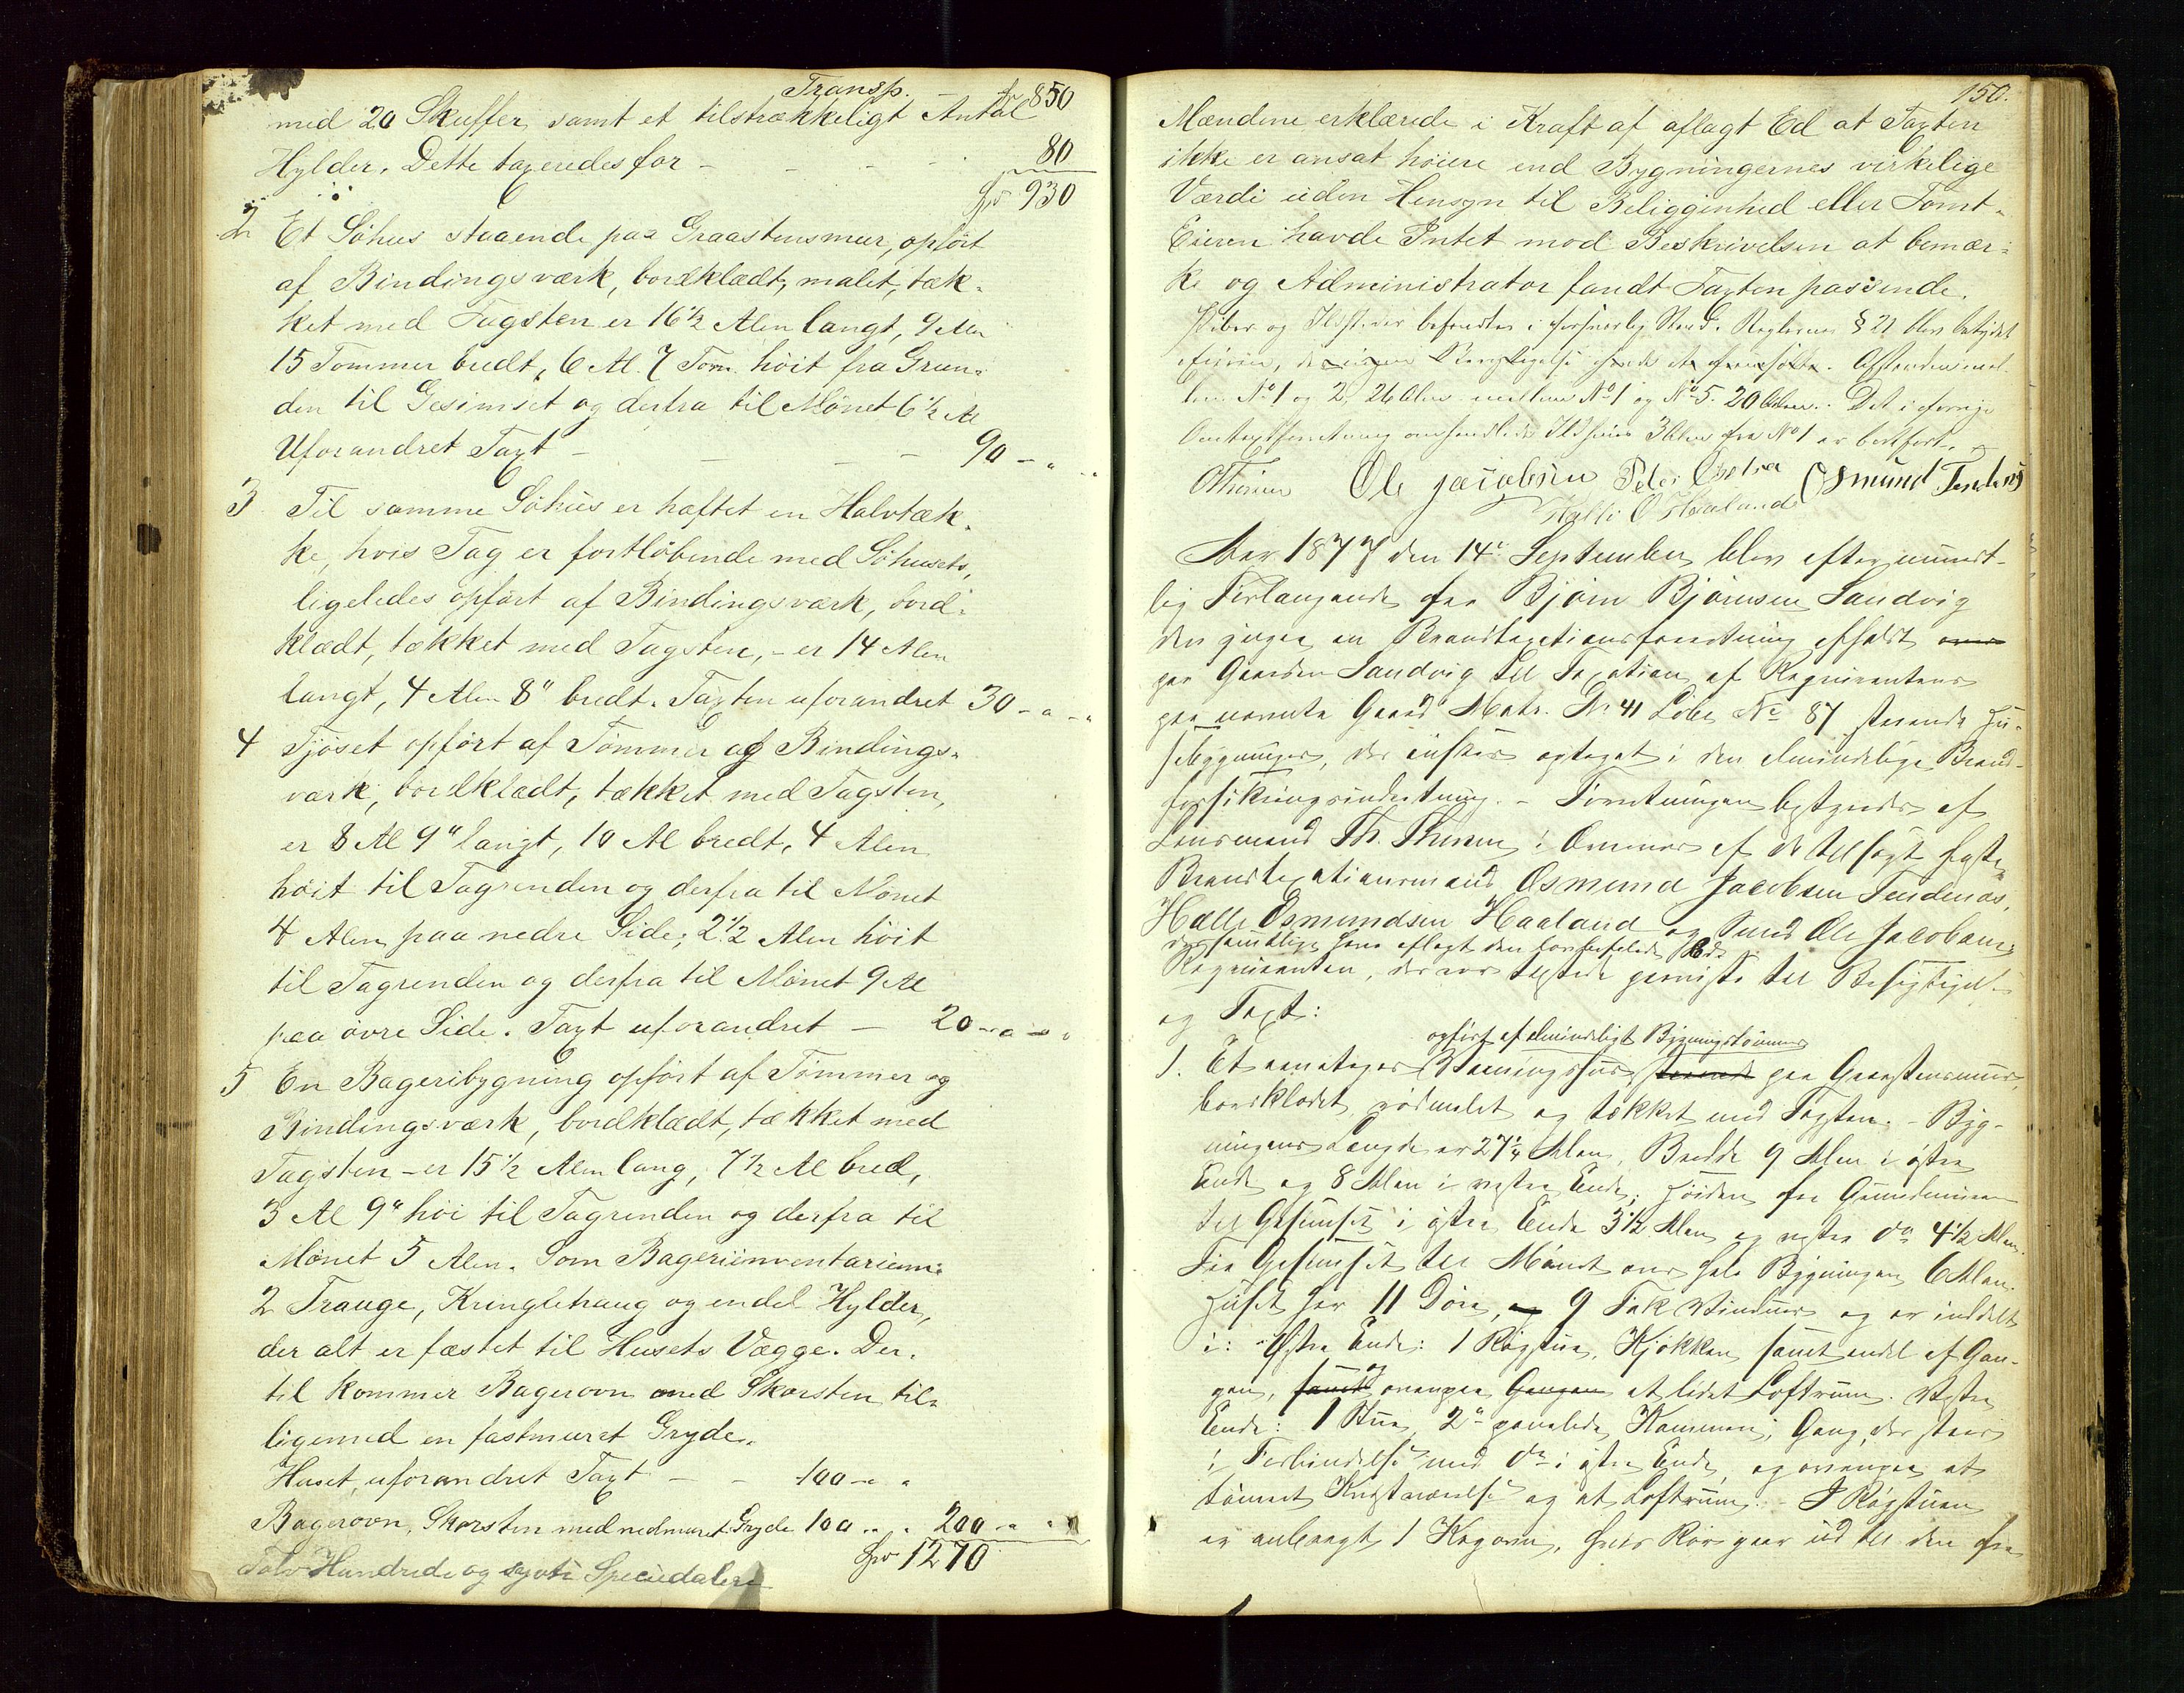 Transp. - Spd 850
med 20 Skuffer samt et tilstrækkeligt Antal
Hylder. Dette taxeredes for - - - - 80
Spd 930
2 Et Söhus staaende paa Graastensmur, opfört
af Bindingsværk, bordklædt, malet, tæk-
ket med Tagsten er 16 1/2 Alen langt, 9 Alen
15 Tommer bredt, 6 Al. 7 Tom. höit fra Grun-
den til Gesimset og derfra til Mönet 6 1/2 Al
Uforandret Taxt - - - - 90 - " - "
3 Til samme Söhus er hæftet en Halvtæk-
ke, hvis Tag er fortlöbende med Söhusets,
ligeledes opfört af Bindingsværk, bord-
klædt, tækket med Tagsten, - er 14 Alen
langt, 4 Alen 8" bredt. Taxten uforandret 30 - " - "
4 Fjöset opfört af Tömmer og Bindings-
værk, bordklædt, tækket med Tagsten,
er 8 Al 9" langt, 10 Al bredt, 4 Alen
höit til Tagrenden og derfra til Mönet
4 Alen paa nedre Side; 2 1/2 Alen höit
til Tagrenden og derfra til Mönet 9 Al
paa övre Side. Taxt uforandret - 20 - " - "
5 En Bageribygning opfört af Tömmer og
Bindingsværk, bordklædt, tækket med
Tagsten - er 15 1/2 Alen lang, 7 1/2 Al bred,
3 Al 9" höi til Tagrenden og derfra til
Mönet 5 Alen. Som Bageriinventarium:
2 Trauge, Kringletraug og endel Hylder,
der alt er fæstet til Husets Vægge. Der-
til kommer Bagerovn med Skorsten til-
ligemed en fastmuret Gryde.
Huset, uforandret Taxt - - 100 - " "
Bagerovn, Skorsten med nedmuret Gryde 100 " " 200 - " "
Spd 1270
Tolv Hundrede og syvti Speciedalere
150.
Mændene erklærede i Kraft af aflagt Ed at Taxten
ikke er ansat höiere end Bygningernes virkelige
Værdi uden Hensyn til Beliggenhed eller Tomt.
Eieren havde Intet mod Beskrivelsen at bemær-
ke og Administrator fandt Taxten passende.
Piber og Ildsteder befandtes i forsvarlig Stand. Reglernes § 21 blev betydet
Eieren, Afstanden mel-
lem No 1 og 2, 26 Alen mellem No 1 og No 5. 20 Alen. Det i forrige
Omtaxtforretning omhandlede Ildhuus 3 Alen fra No 1 er bortfört.
OThorsen Ole Jacobsen Peder Osmund Tendenes
Halle O Haaland
Aar 1877 den 14de September blev efter mundt-
lig Forlangende fra Björn Björnsen Sandvig
den  en Brandtaxationsforretning afholdt
paa Gaarden Sandvig til Taxation af Rekvirentens
paa nævnte Gaard Matr. No 41 Löbe No 87 staaende Hu-
sebygninger, der önskes optaget i den almindelige Brand-
forsikringsindretning. - Forretningen bestyredes af
Lensmand Th. Thorsen i Overvær af de tilsagte faste
Brandtaxationsmænd Osmund Jacobsen Tendenæs,
Halle Osmundsen Haaland og Svend Ole Jacobsen
der samtlige have aflagt den forbefalede Ed
Rekvirenten, der var tilstede paaviste til Besigtigelse
og Taxt:
opfört af almindeligt Bygningstömmer
1. Et eenetages Vaaningshus staaende paa Graastensmur,
bordklædt, rödmalet og tækket med Tagsten. - Byg-
ningens Længde er 27 1/4 Alen, Bredde 9 Alen i östre
Ende og 8 Alen i vestre Ende; Höiden fra Grundmuren
til Gesimset i östre Ende 3 1/2 Alen og vestre do 4 1/2 Alen.
Fra Gesimset til Mönet over hele Bygningen 6 Alen.
Huset har 11 Döre, og 9 Fak Vinduer og er inddelt
i: Östre Ende: 1 Rögstue, Kjökken samt endel af Gan-
gen, samt og ovenpaa Gangen et lidet Loftrum. Vestre
Ende: 1 Stue, 2de panelede Kammere, Gang, der staar
i Forbindelse med do i östre Ende, og ovenpaa et
tömret Kvistværelse og et Loftrum. I Rögstuen
er anbragt 1 Kogeovn, hvis Rör gaar ud til den fra